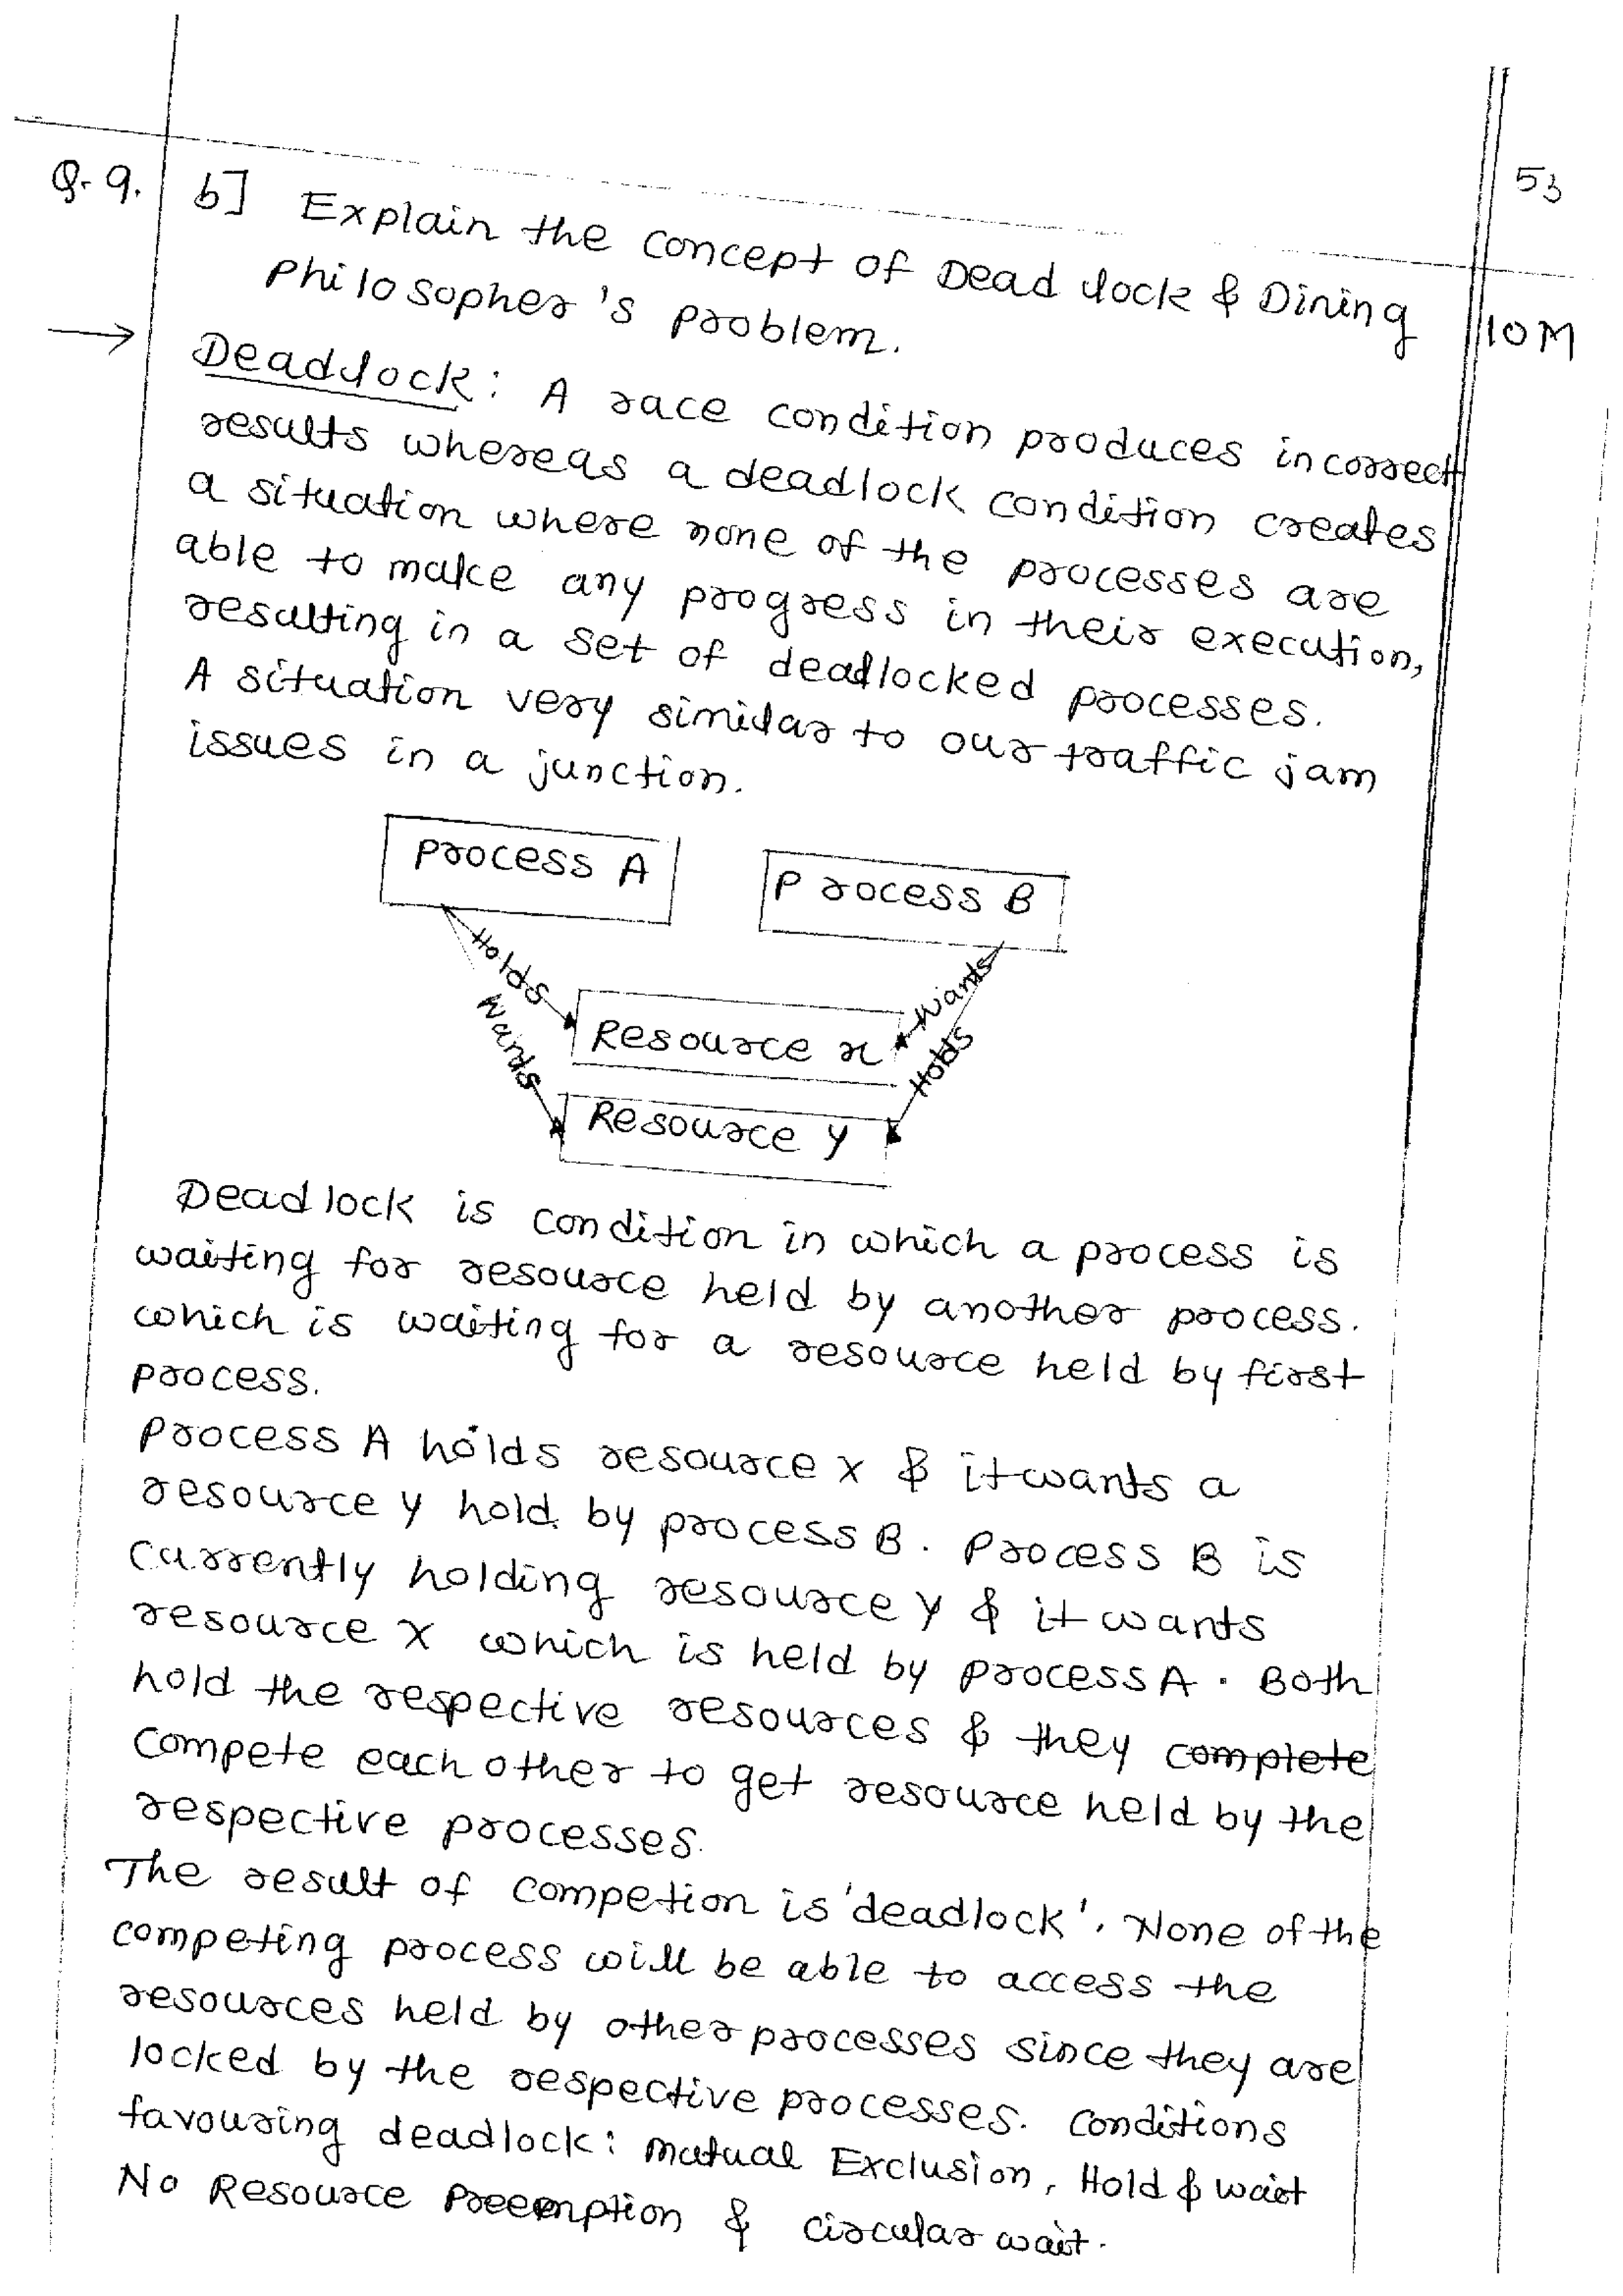 53
Q.9. b] Explain the concept of Dead lock & Dining
Philosopher's problem. 10M
→ Deadlock: A race condition produces incorrect
results whereas a deadlock condition creates
a situation where none of the processes are
able to make any progress in their execution,
resulting in a set of deadlocked processes.
A situation very similar to our traffic jam
issues in a junction.
Process A
Process B
Holds
Wants
Wants
Holds
Resource x
Resource y
Deadlock is condition in which a process is
waiting for resource held by another process.
which is waiting for a resource held by first
process.
Process A holds resource x & it wants a
resource y hold by process B. Process B is
currently holding resource y & it wants
resource x which is held by process A. Both
hold the respective resources & they complete
compete each other to get resource held by the
respective processes.
The result of competion is 'deadlock'. None of the
competing process will be able to access the
resources held by other processes since they are
locked by the respective processes. Conditions
favouring deadlock: Mutual Exclusion, Hold & wait
No Resource Preemption & circular wait.